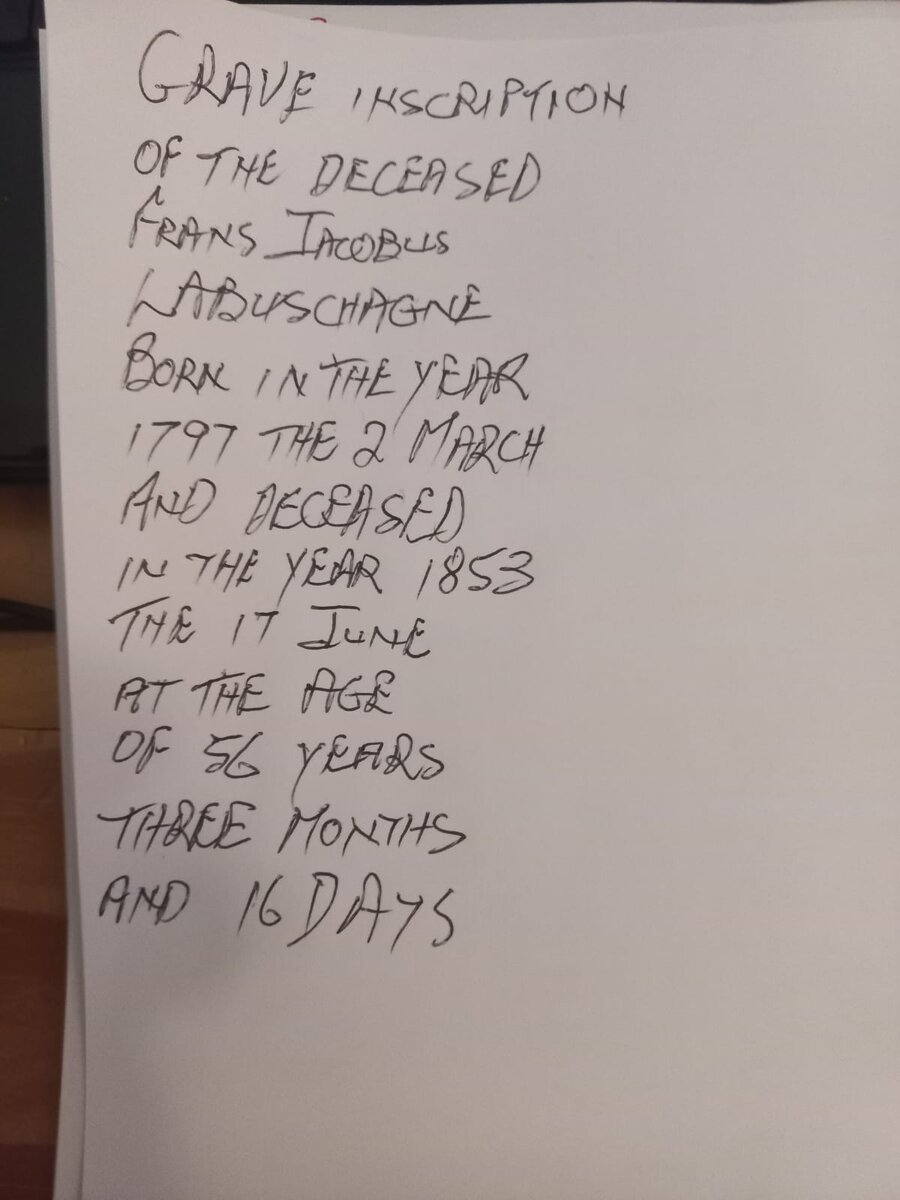 GRAVE INSCRIPTION
OF THE DECEASED
FRANS IACOBUS
LABUSCHAGNE
BORN IN THE YEAR
1797 THE 2 MARCH
AND DECEASED
IN THE YEAR 1853
THE 17 IUNE
AT THE AGE
OF 56 YEARS
THREE MONTHS
AND 16 DAYS